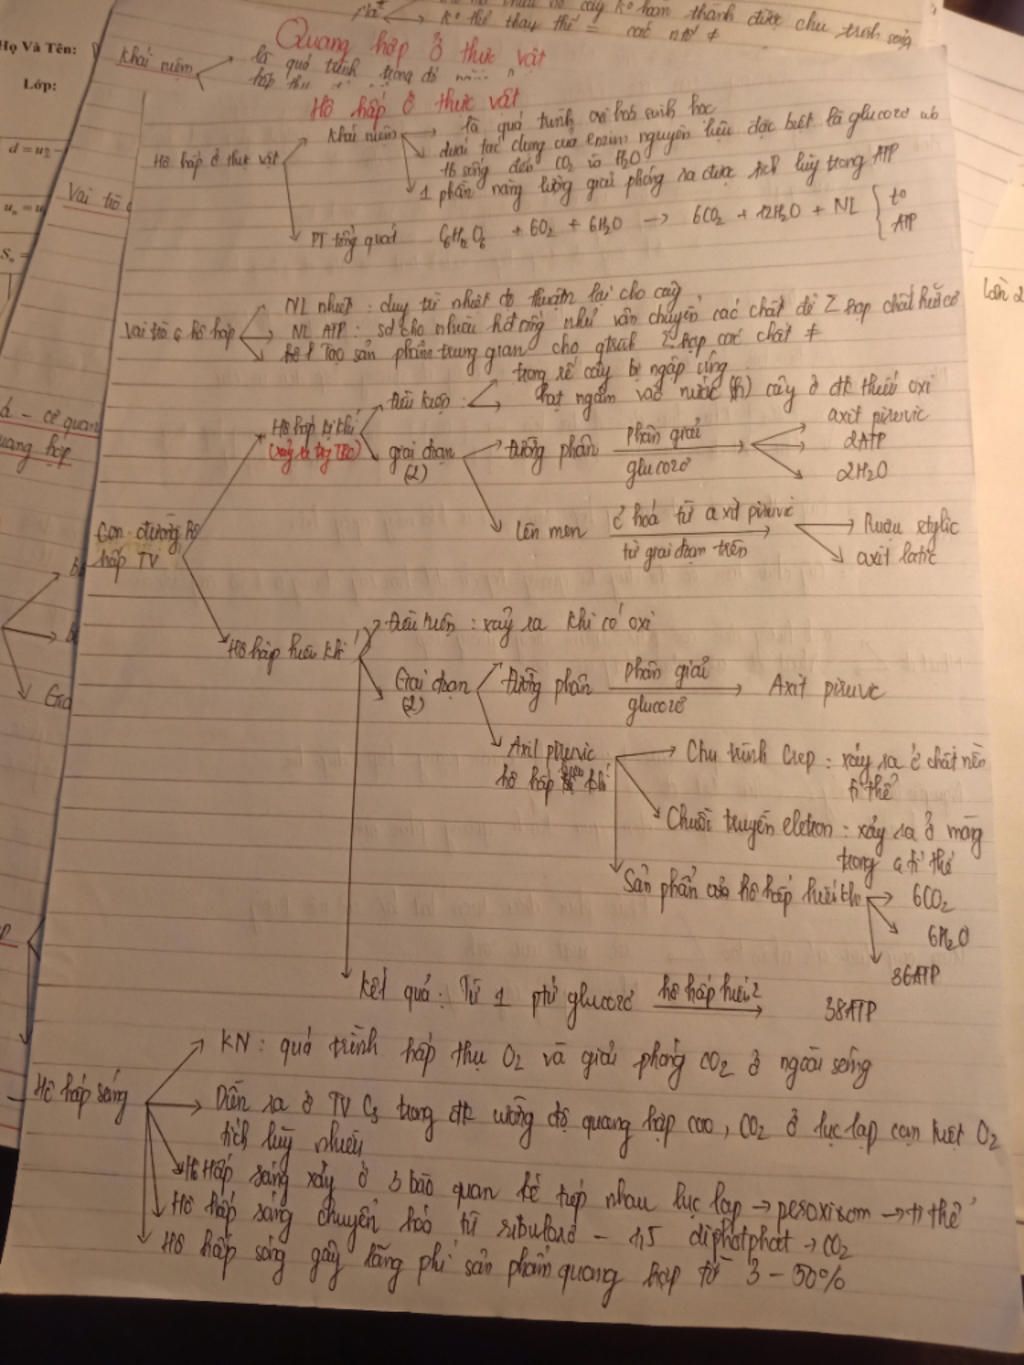 k° thể thay thế = các ntố ≠
cây k° hoàn thành được chu trình sống
Họ Và Tên:
Lớp:
Quang hợp ở thực vật
khái niệm
là quá trình trong đó
Hô hấp ở thực vật
Hô hấp ở thực vật
khái niệm
là quá trình oxi hoá sinh học
dưới tác dụng của enzim nguyên liệu đặc biệt là glucozơ
tb sống đến CO2 và H2O
1 phần năng lượng giải phóng ra được tích lũy trong ATP
PT tổng quát
C6H12O6 + 6O2 + 6H2O → 6CO2 + 12H2O + NL { t°
ATP
d = u2 -
un = u
Sn =
Vai trò
Lần 2
Vai trò c hô hấp
NL nhiệt : duy trì nhiệt độ thuận lợi cho cây
NL ATP : sd cho nhiều hđ sống như vận chuyển các chất để Σ hợp chất hữu cơ
Tạo sản phẩm trung gian cho qtrình Σ hợp các chất ≠
Con đường hô
hấp TV
Hô hấp kị khí
(xảy ra trg TBC)
điều kiện :
trong rễ cây bị ngập úng
hạt ngâm vào nước (h) cây ở đk thiếu oxi
giai đoạn
(2)
đường phân
phân giải
glucozơ
axit piruvic
2ATP
2H2O
Lên men
c̉ hoá từ axit piruvic
từ giai đoạn trên
Rượu etylic
axit latic
á - cơ quan
uang hợp
Hô hấp hiếu khí
điều kiện : xảy ra khi có oxi
Giai đoạn
(2)
Đường phân
phân giải
glucozơ
Axit piruvic
Axit piruvic
hô hấp hiếu khí
Chu trình Crep : xảy ra ở chất nền
ti thể
Chuỗi truyền eletron : xảy ra ở màng
trong ti thể
Sản phẩm của hô hấp hiếu khí
6CO2
6H2O
36ATP
Kết quả : Từ 1 ptử glucozơ
hô hấp hiếu
38ATP
Hô hấp sáng
KN : quá trình hấp thụ O2 và giải phóng CO2 ở ngoài sáng
Diễn ra ở TV C3 trong đk cường độ quang hợp cao, CO2 ở lục lạp cạn kiệt O2
tích luỹ nhiều
Hô Hấp sáng xảy ở 3 bào quan kế tiếp nhau lục lạp → peroxixom → ti thể
Hô hấp sáng chuyển hoá từ ribulozơ - 1,5 diphotphat → CO2
Hô hấp sáng gây lãng phí sản phẩm quang hợp từ 3 - 50%